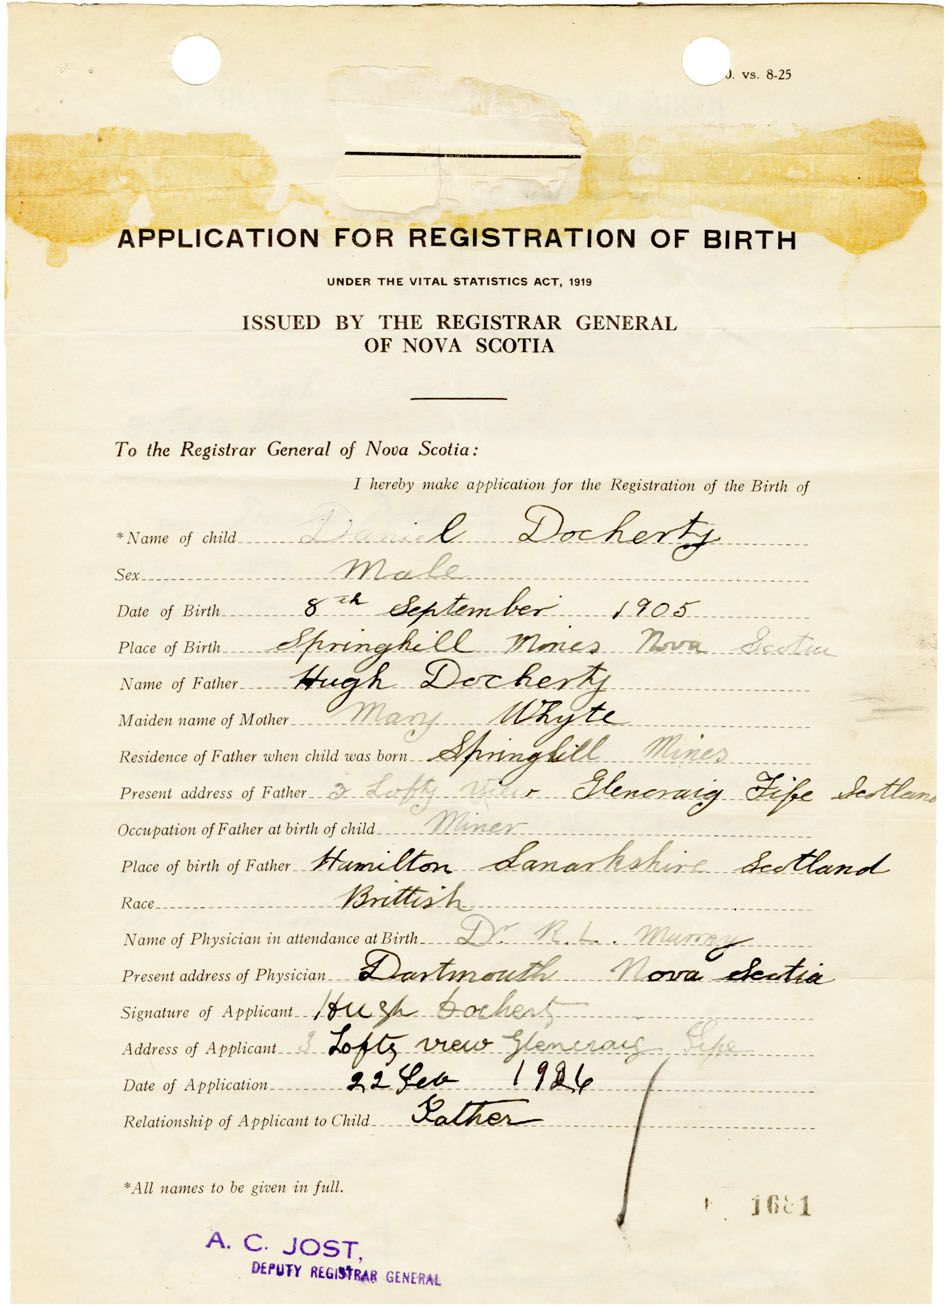 0. vs. 8-25
APPLICATION FOR REGISTRATION OF BIRTH
UNDER THE VITAL STATISTICS ACT, 1919
ISSUED BY THE REGISTRAR GENERAL
OF NOVA SCOTIA
To the Registrar General of Nova Scotia:
I hereby make application for the Registration of the Birth of
*Name of child Daniel Docherty
Sex Male
Date of Birth 8th September 1905
Place of Birth Springhill Mines Nova Scotia
Name of Father Hugh Docherty
Maiden name of Mother Mary Whyte
Residence of Father when child was born Springhill Mines
Present address of Father 3 Lofty View Glencraig Fife Scotland
Occupation of Father at birth of child Miner
Place of birth of Father Hamilton Lanarkshire Scotland
Race Brittish
Name of Physician in attendance at Birth Dr R. L. Murray
Present address of Physician Dartmouth Nova Scotia
Signature of Applicant Hugh Docherty
Address of Applicant 3 Lofty view Glencraig Fife
Date of Application 22 Feb 1926
Relationship of Applicant to Child Father
*All names to be given in full.
1681
A. C. JOST,
DEPUTY REGISTRAR GENERAL